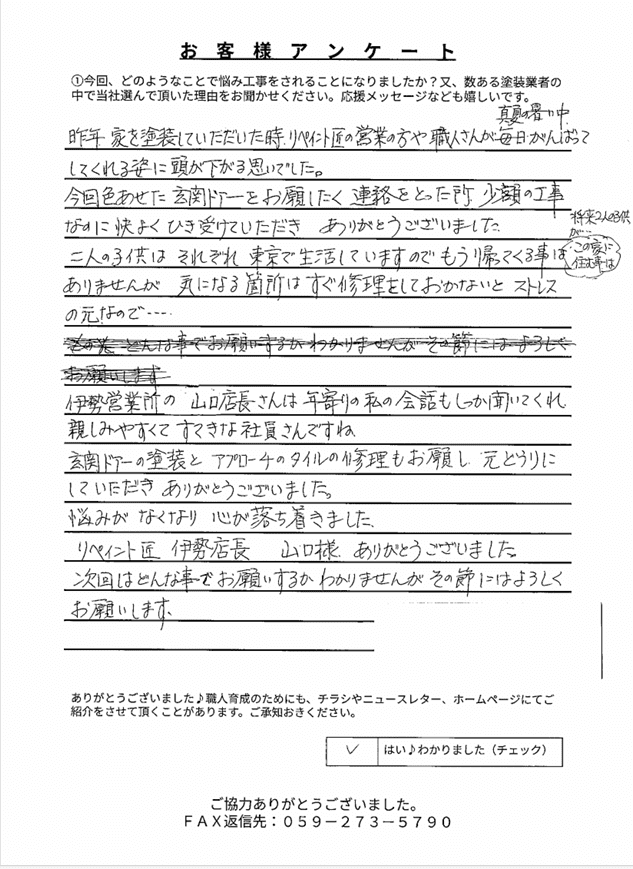 お客様アンケート
①今回、どのようなことで悩み工事をされることになりましたか？又、数ある塗装業者の
中で当社選んで頂いた理由をお聞かせください。応援メッセージなども嬉しいです。
真夏の暑い中
昨年 家を塗装していただいた時、リペイント匠の営業の方や職人さんが毎日がんばって
してくれる姿に頭が下がる思いでした。
今回色あせた玄関ドアーをお願したく 連絡をとった所 少額の工事
なのに快よくひき受けていただき ありがとうございました
将来2人の子供
が
この家に
住む事は
二人の子供は それぞれ 東京で生活していますのでもう帰ってくる事は
ありませんが 気になる箇所はすぐ修理をしておかないと ストレス
の元なので……
どんな事でお願いするかわかりませんが その節にはよろしく
お願いします
伊勢営業所の 山口店長さんは年寄りの私の会話もしっか聞いてくれ
親しみやすくてすてきな社員さんですね
玄関ドアーの塗装と アプローチのタイルの修理もお願し 元どうりに
していただき ありがとうございました。
悩みが なくなり 心が落ち着きました、
リペイント匠 伊勢店長 山口様、ありがとうございました。
次回はどんな事でお願いするか わかりませんが その節にはよろしく
お願いします、
ありがとうございました♪職人育成のためにも、チラシやニュースレター、ホームページにてご
紹介をさせて頂くことがあります。ご承知おきください。
✓ はい♪わかりました（チェック）
ご協力ありがとうございました。
ＦＡＸ返信先：０５９－２７３－５７９０